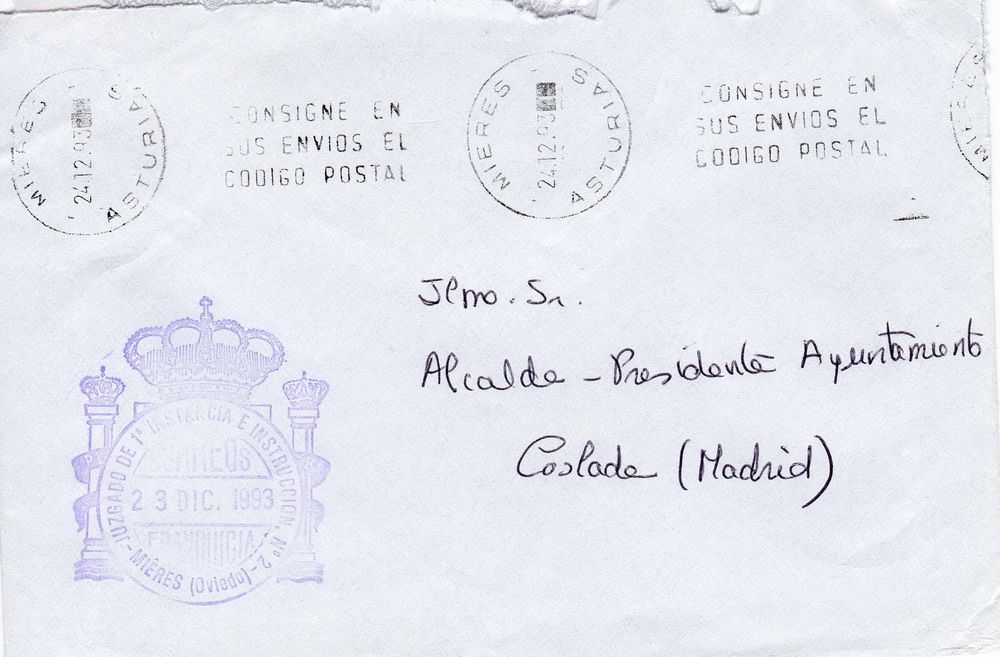 MIERES
ASTURIAS
24.12.93
CONSIGNE EN
SUS ENVIOS EL
CODIGO POSTAL
MIERES
ASTURIAS
24.12.93
CONSIGNE EN
SUS ENVIOS EL
CODIGO POSTAL
Ilmo. Sr.
Alcalde - Presidente Ayuntamiento
Coslada (Madrid)
JUZGADO DE 1ª INSTANCIA E INSTRUCCION, Nº 2
CORREOS
23 DIC. 1993
FRANQUICIA
- MIERES (Oviedo) -